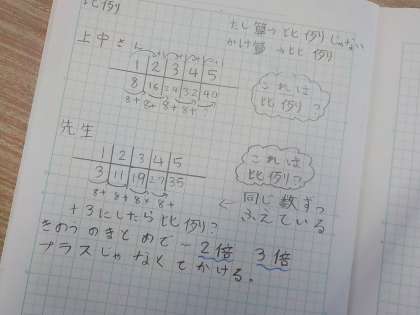 比例
たし算→比例じゃない
かけ算→比例
上中さ
1 2 3 4 5
8 16 24 32 40
8+ 8+ 8+ 8+
これは
比例?
先生
1 2 3 4 5
3 11 19 27 35
8+ 8+ 8+ 8+
これは
比例?
← 同じ数ずつ
ふえている
+3にしたら比例?
きのうのきまとめで-2倍 3倍
プラスじゃなくてかける。